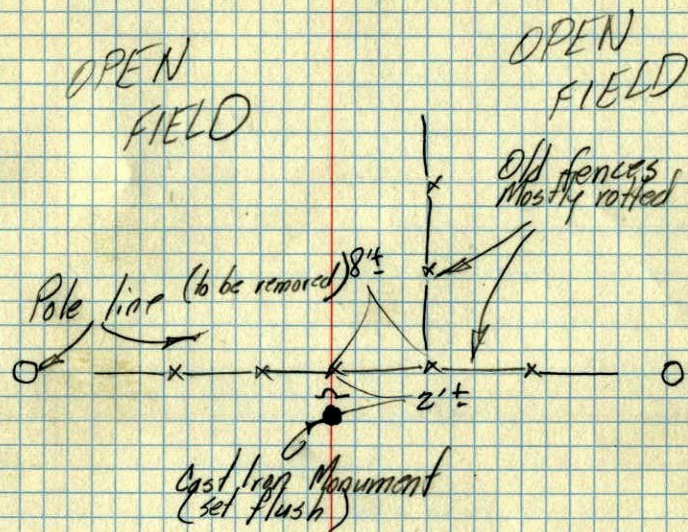 OPEN
FIELD
OPEN
FIELD
Old fences
Mostly rotted
8'±
Pole line (to be removed)
2'±
Cast Iron Monument
(set flush)